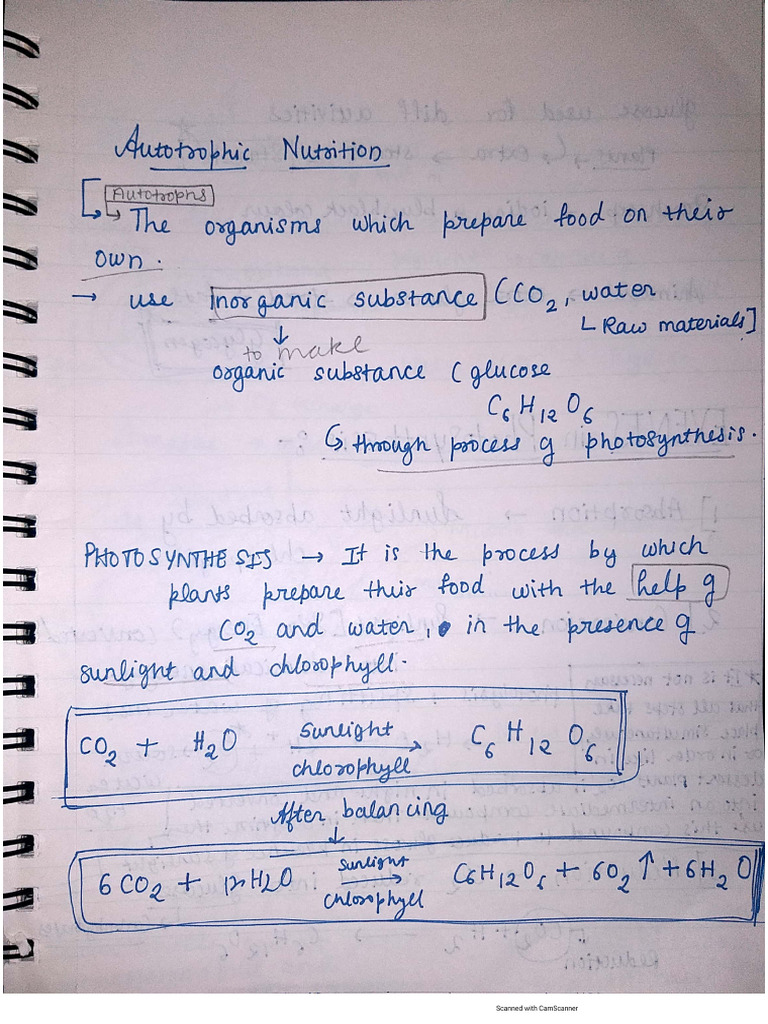 Autotrophic Nutrition
Autotrophs
The organisms which prepare food on their
own.
→ use inorganic substance (CO2, water
Raw materials]
↓
to make
organic substance (glucose
C6H12O6
↳ through process of photosynthesis.
PHOTOSYNTHESIS → It is the process by which
plants prepare their food with the help of
CO2 and water, in the presence of
sunlight and chlorophyll.
CO2 + H2O —Sunlight/chlorophyll→ C6H12O6
After balancing
↓
6CO2 + 12H2O —sunlight/chlorophyll→ C6H12O6 + 6O2↑ + 6H2O
Scanned with CamScanner